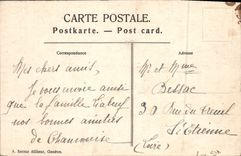 CARTE POSTALE.
Postkarte. — Post card.
Correspondance
Mes chers amis,
Je vous envoie ainsi
que la famille
nos bonnes amitiés
de Chamonix
Mr et Mme
Bessac
30 Rue du Treuil
St Etienne
(Loire)
A. Sartor Editeur, Genève.